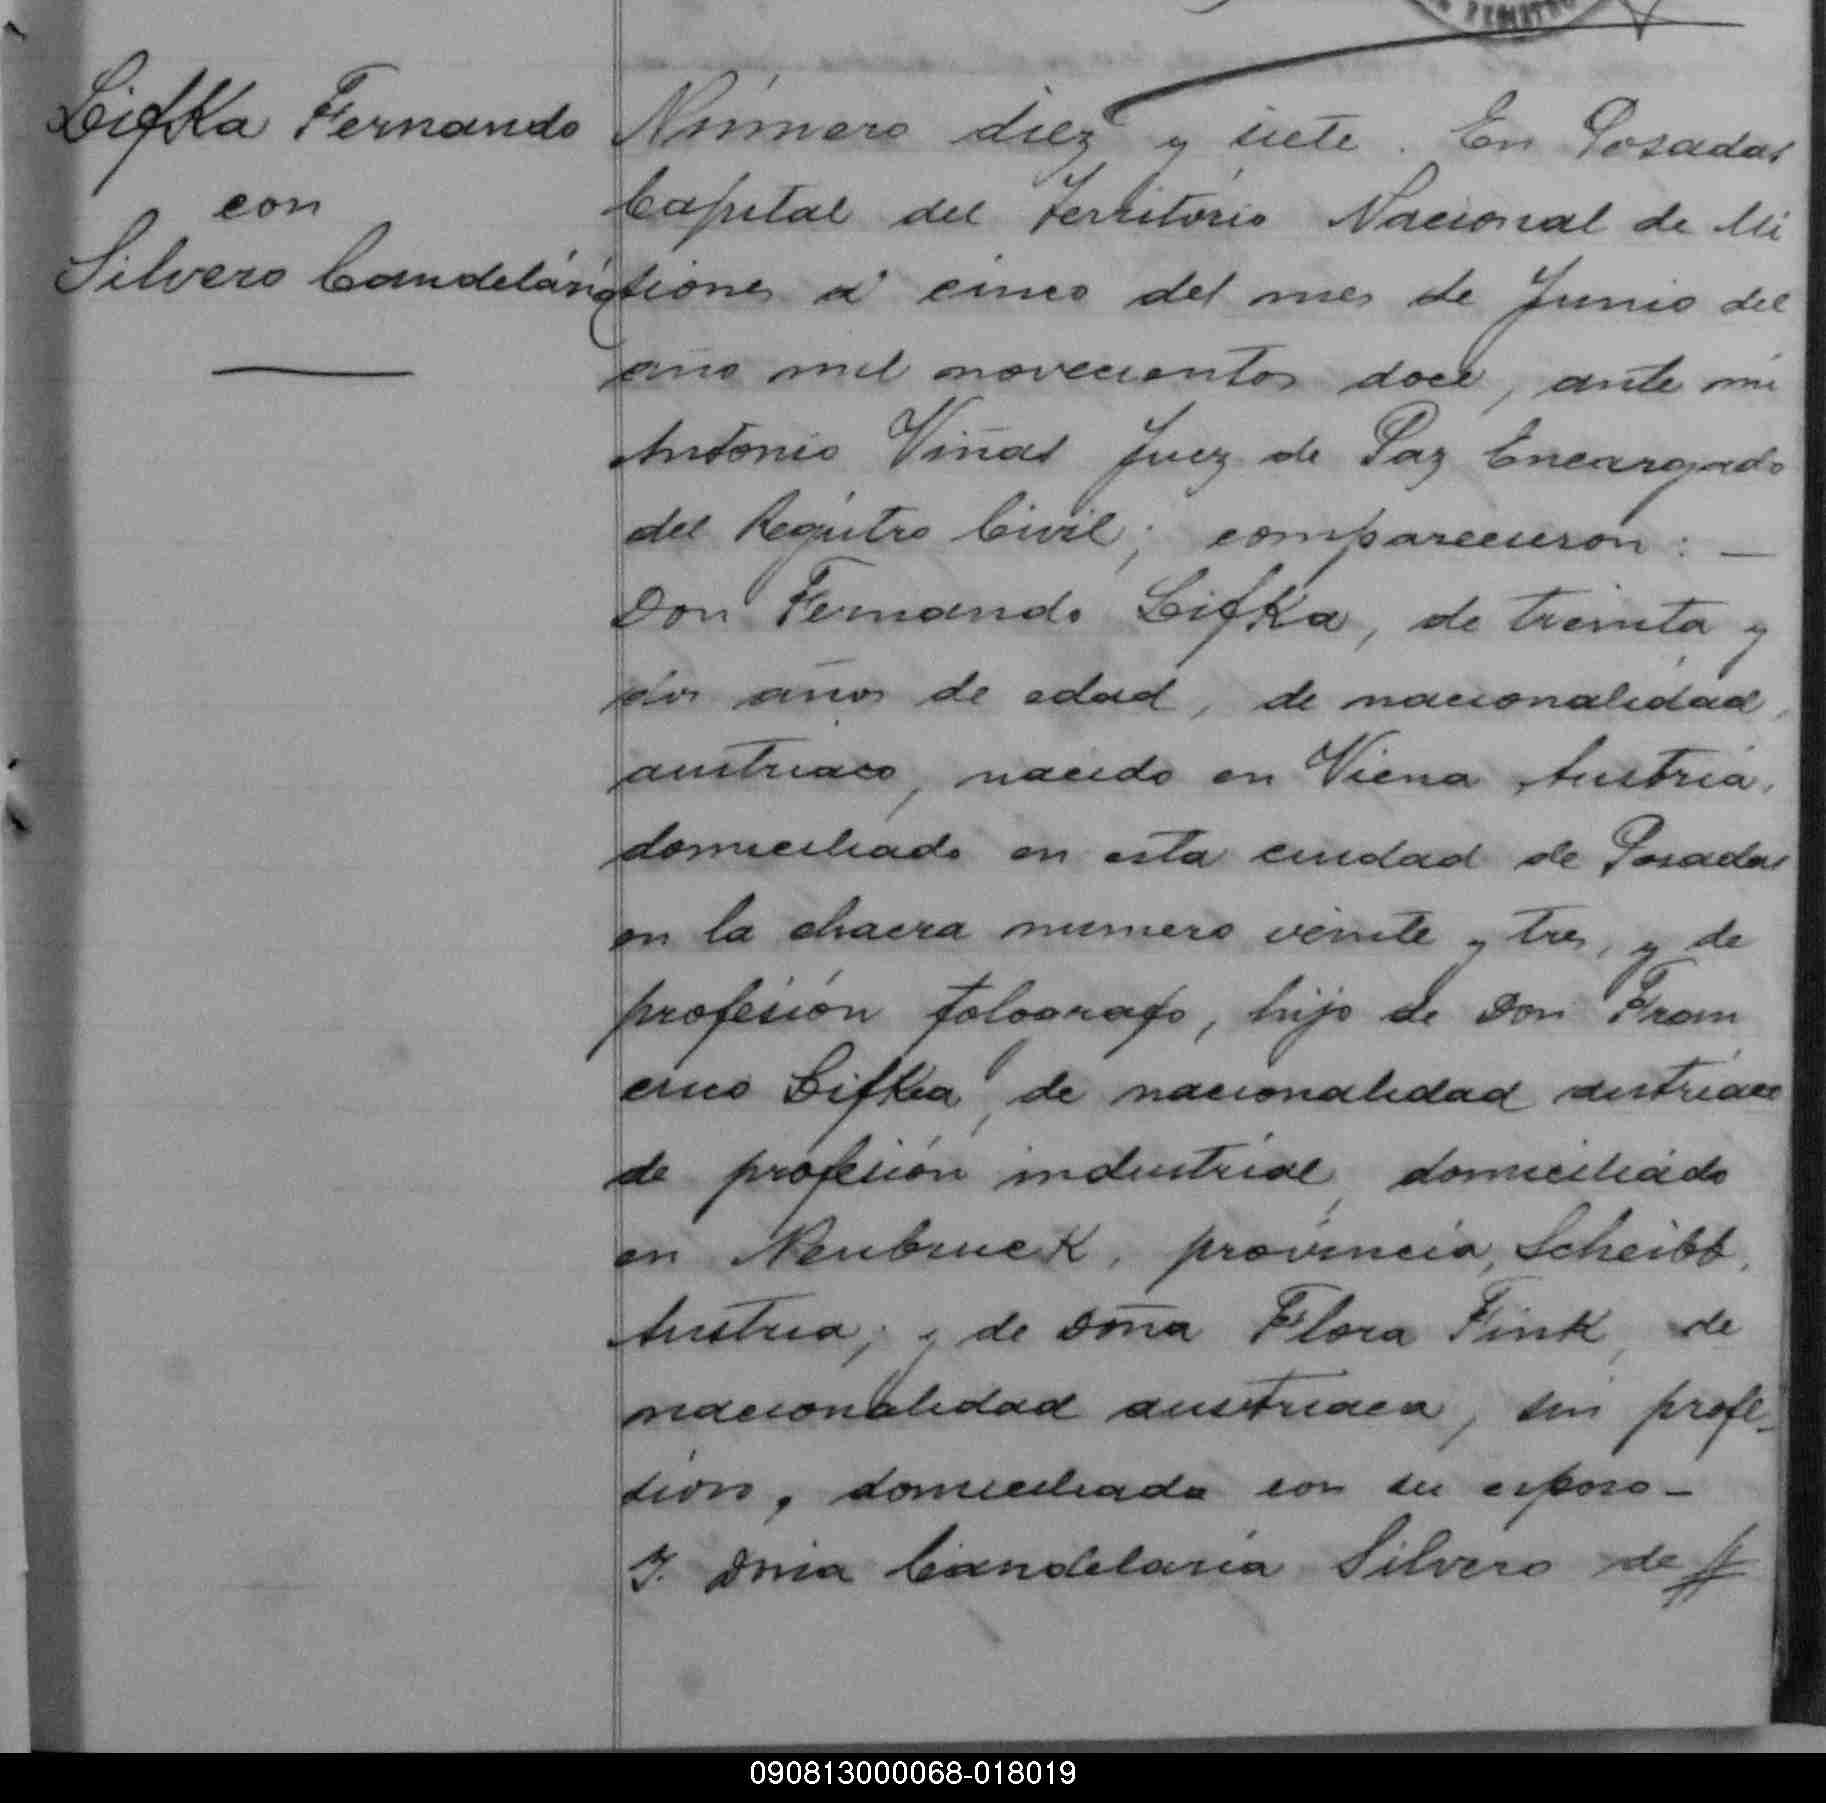 Lifka Fernando
con
Silvero Candelária
Número diez y siete. En Posadas
Capital del Territorio Nacional de Mi
siones á cinco del mes de Junio del
año mil novecientos doce, ante mi
Antonio Viñas Juez de Paz Encargado
del Registro Civil; comparecieron: —
Don Fernando Lifka, de treinta y
dos años de edad, de nacionalidad,
austriaco, nacido en Viena Austria,
domiciliado en esta ciudad de Posadas
en la chacra numero veinte y tres, y de
profesión fotografo, hijo de Don Fran
cisco Lifka, de nacionalidad austriaco
de profesión industrial, domiciliado
en Neubruck, provincia, Scheibb,
Austria; y de Doña Flora Fink, de
nacionalidad austriaca, sin profe-
sion, domiciliada con su esposo —
Y. Doña Candelaria Silvero de
090813000068-018019